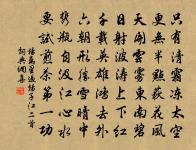 只有清霜凍太空
更無半點荻花風
天開雲霧東南碧
日射波濤上下紅
千載英雄鴻去外
六朝形勝雪晴中
攜瓶自汲江心水
要試煎茶第一功
楊萬里過揚子江二首
詞典網